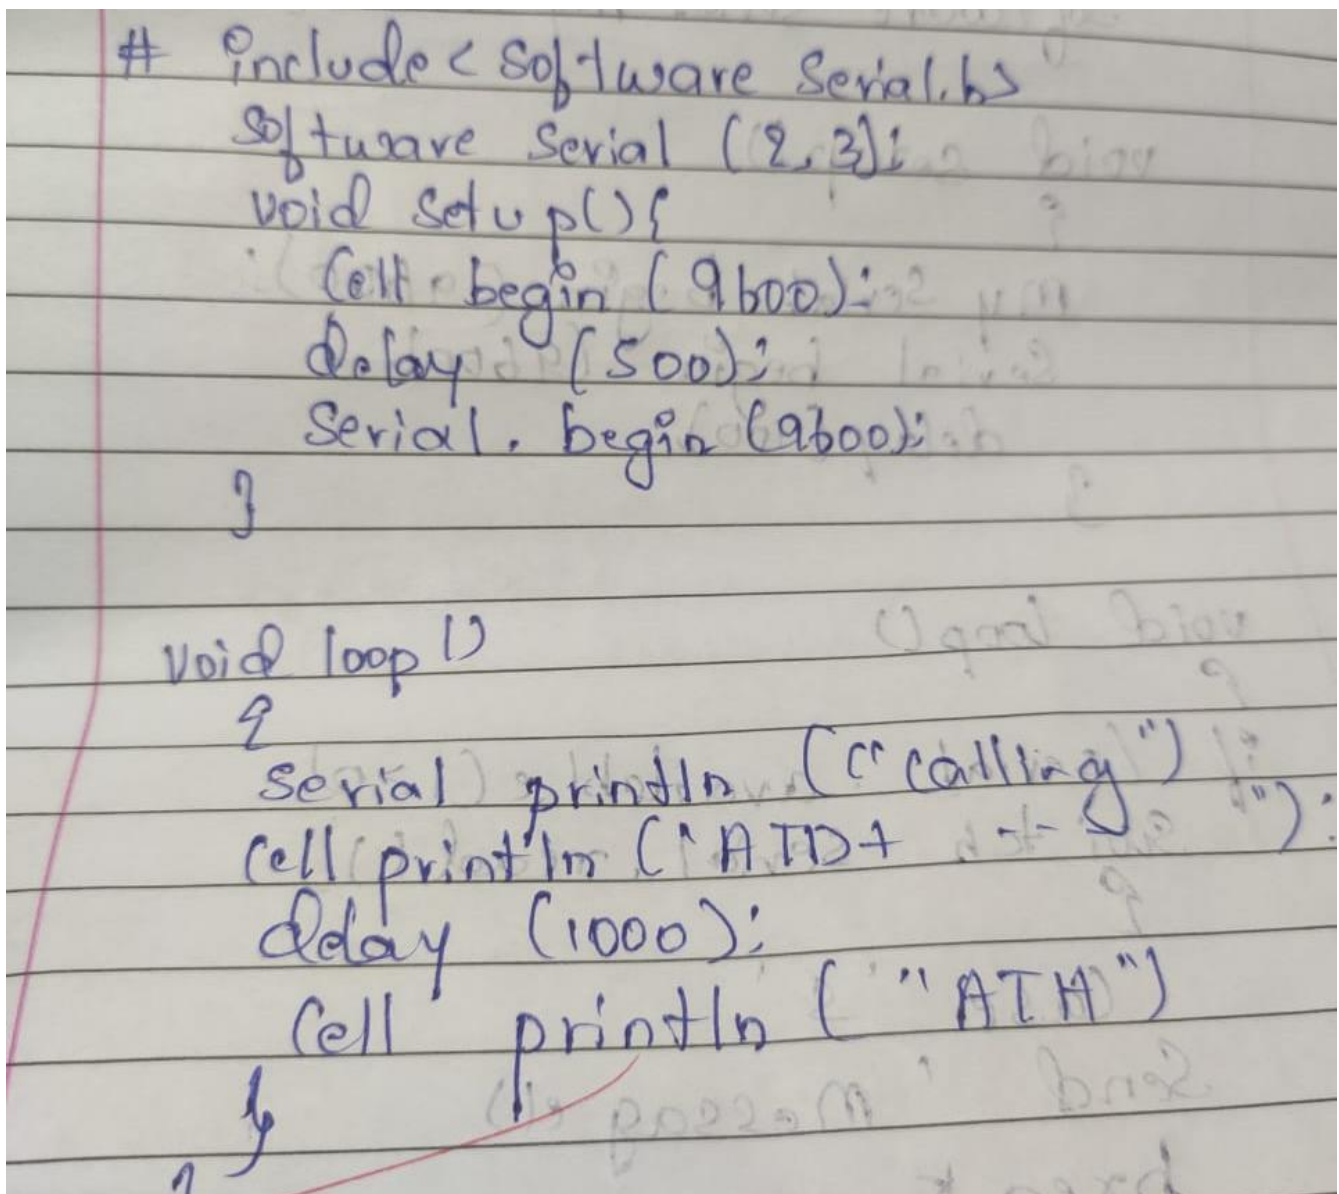 # include < Software Serial.h>
Software Serial (2,3);
void setup(){
Cell. begin (9600);
delay (500);
Serial. begin (9600);
}
void loop ()
{
Serial println ("calling")
Cell println ("ATD+ ");
delay (1000);
Cell println ("ATH")
}